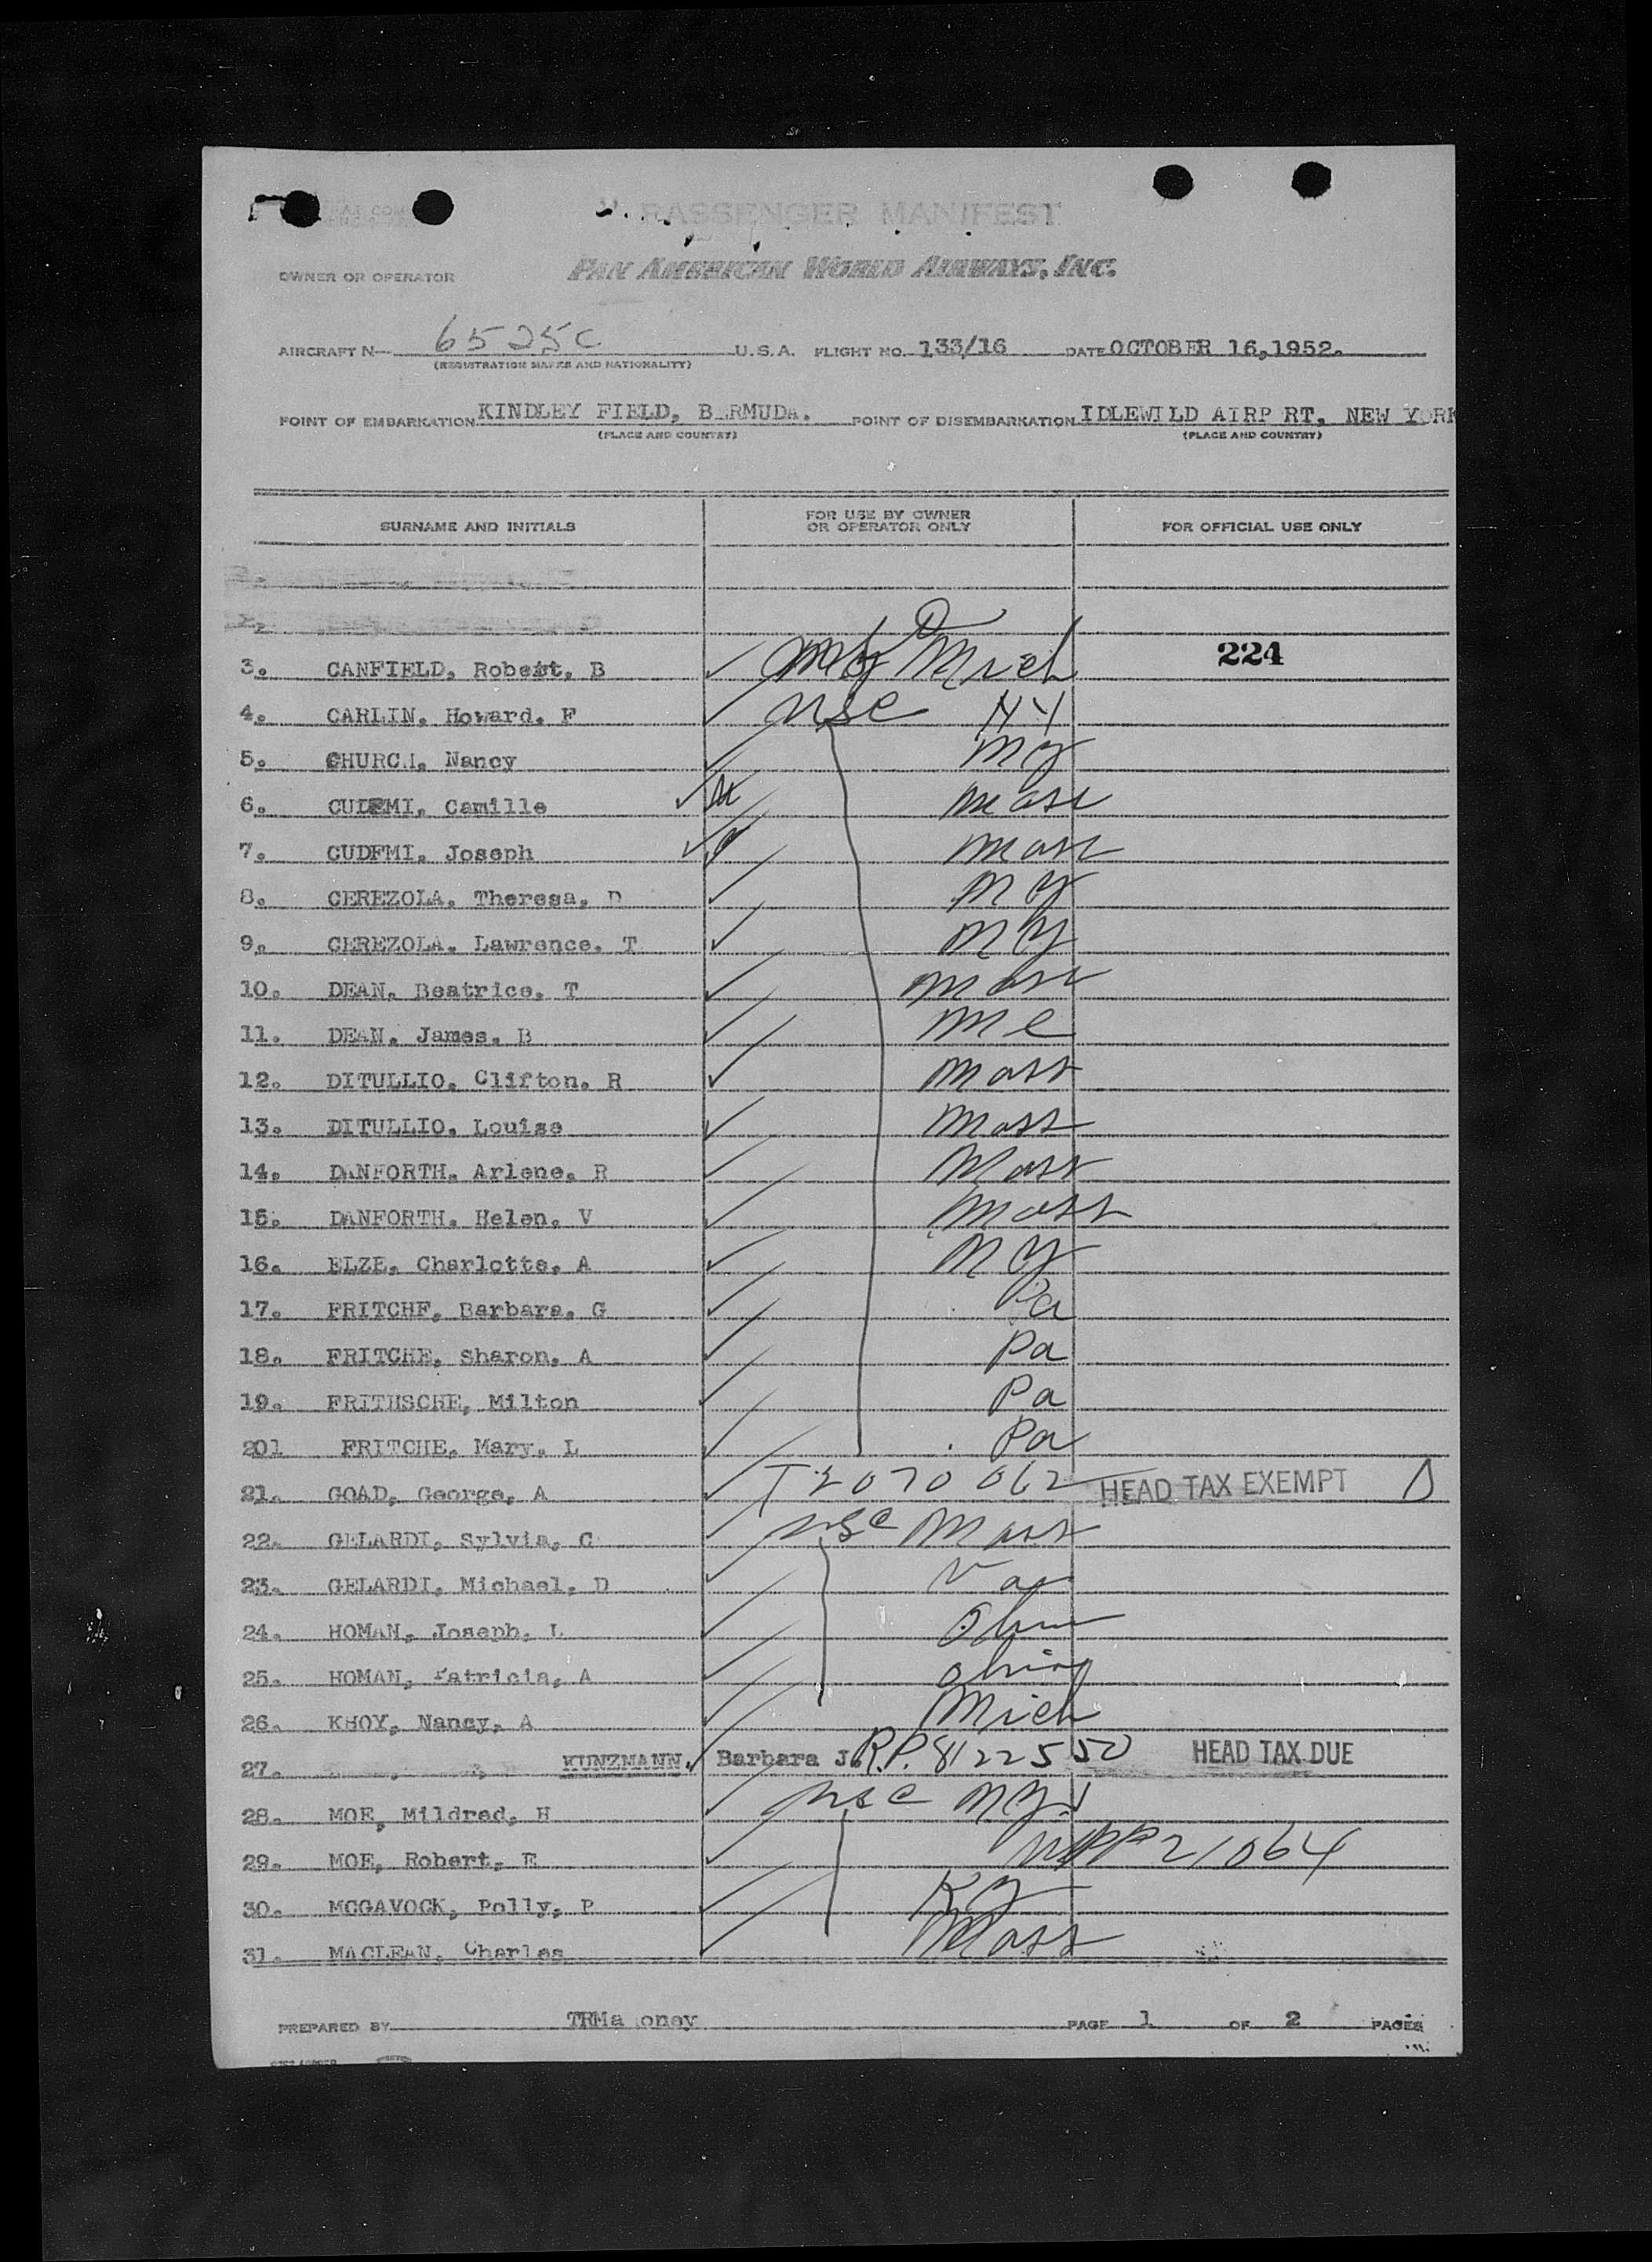 PASSENGER MANIFEST
OWNER OR OPERATOR PAN AMERICAN WORLD AIRWAYS, INC.
AIRCRAFT N— 6525C U.S.A. FLIGHT NO. 133/16 DATE OCTOBER 16,1952.
(REGISTRATION MARKS AND NATIONALITY)
POINT OF EMBARKATION KINDLEY FIELD, B RMUDA. POINT OF DISEMBARKATION IDLEWILD AIRP RT, NEW YORK
(PLACE AND COUNTRY) (PLACE AND COUNTRY)
SURNAME AND INITIALS FOR USE BY OWNER OR OPERATOR ONLY FOR OFFICIAL USE ONLY
3. CANFIELD, Robert, B ✓ Mich 224
4. CARLIN. Howard. F ✓ usc NY
5. CHURCH, Nancy ✓ NY
6. CUDEMI, Camille ✓ Mass
7. CUDEMI. Joseph ✓ Mass
8. CEREZOLA. Theresa, D ✓ NY
9. CEREZOLA. Lawrence. T ✓ NY
10. DEAN. Beatrice. T ✓ Mass
11. DEAN. James. B ✓ Me
12. DITULLIO. Clifton. R ✓ Mass
13. DITULLIO. Louise ✓ Mass
14. DANFORTH. Arlene. R ✓ Mass
15. DANFORTH. Helen. V ✓ Mass
16. ELZE. Charlotte. A ✓ NY
17. FRITCHE, Barbara. G ✓ Pa
18. FRITCHE, Sharon. A ✓ Pa
19. FRITHSCHE, Milton ✓ Pa
201 FRITCHE, Mary. L ✓ Pa
21. GOAD, George, A ✓ T 2070062 HEAD TAX EXEMPT
22. GELARDI, Sylvia, C ✓ usc Mass
23. GELARDI, Michael, D ✓ Va
24. HOMAN, Joseph, L ✓ Ohio
25. HOMAN, Patricia, A ✓ Ohio
26. KHOY, Nancy, A ✓ Mich
27. KUNZMANN. ✓ Barbara J. R.P. 8122550 HEAD TAX DUE
28. MOE, Mildred, H ✓ usc NY
29. MOE, Robert, E ✓ 21064
30. MCGAVOCK, Polly, P ✓ Ky
31. MACLEAN, Charles ✓ Mass
PREPARED BY TRMa oney PAGE 1 OF 2 PAGES